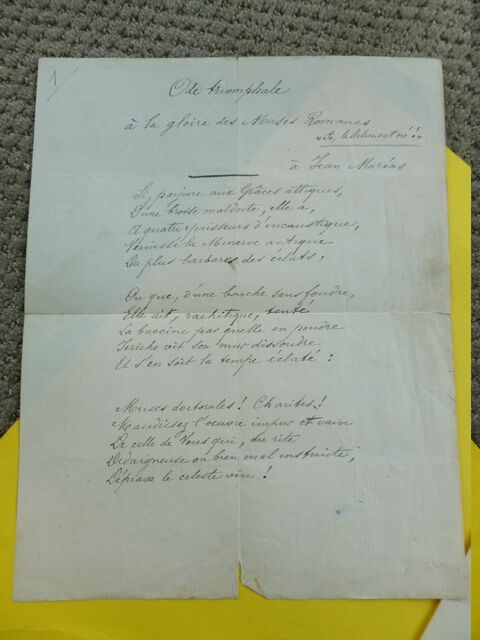 1
Ode triomphale
à la gloire des Muses Romanes
le Pélican est né !
à Jean Moréas
Si, parjure aux Grâces attiques,
D'une brosse maldoite, elle a,
A quatre épaisseurs d'encaustique,
Vernissé la Minerve antique
Du plus barbare des éclats ;
Ou que, d'une bouche sans foudre,
Elle ait, rachitique, tenté
La buccine par quelle en poudre
Jéricho vit son mur dissoudre
Et s'en soit la tempe éclaté :
Muses doctorales ! Charites !
Maudissez l'œuvre impur et vain
De celle de Vous qui, du rite
Dédaigneuse ou bien mal instruite,
Déprava le céleste vin !